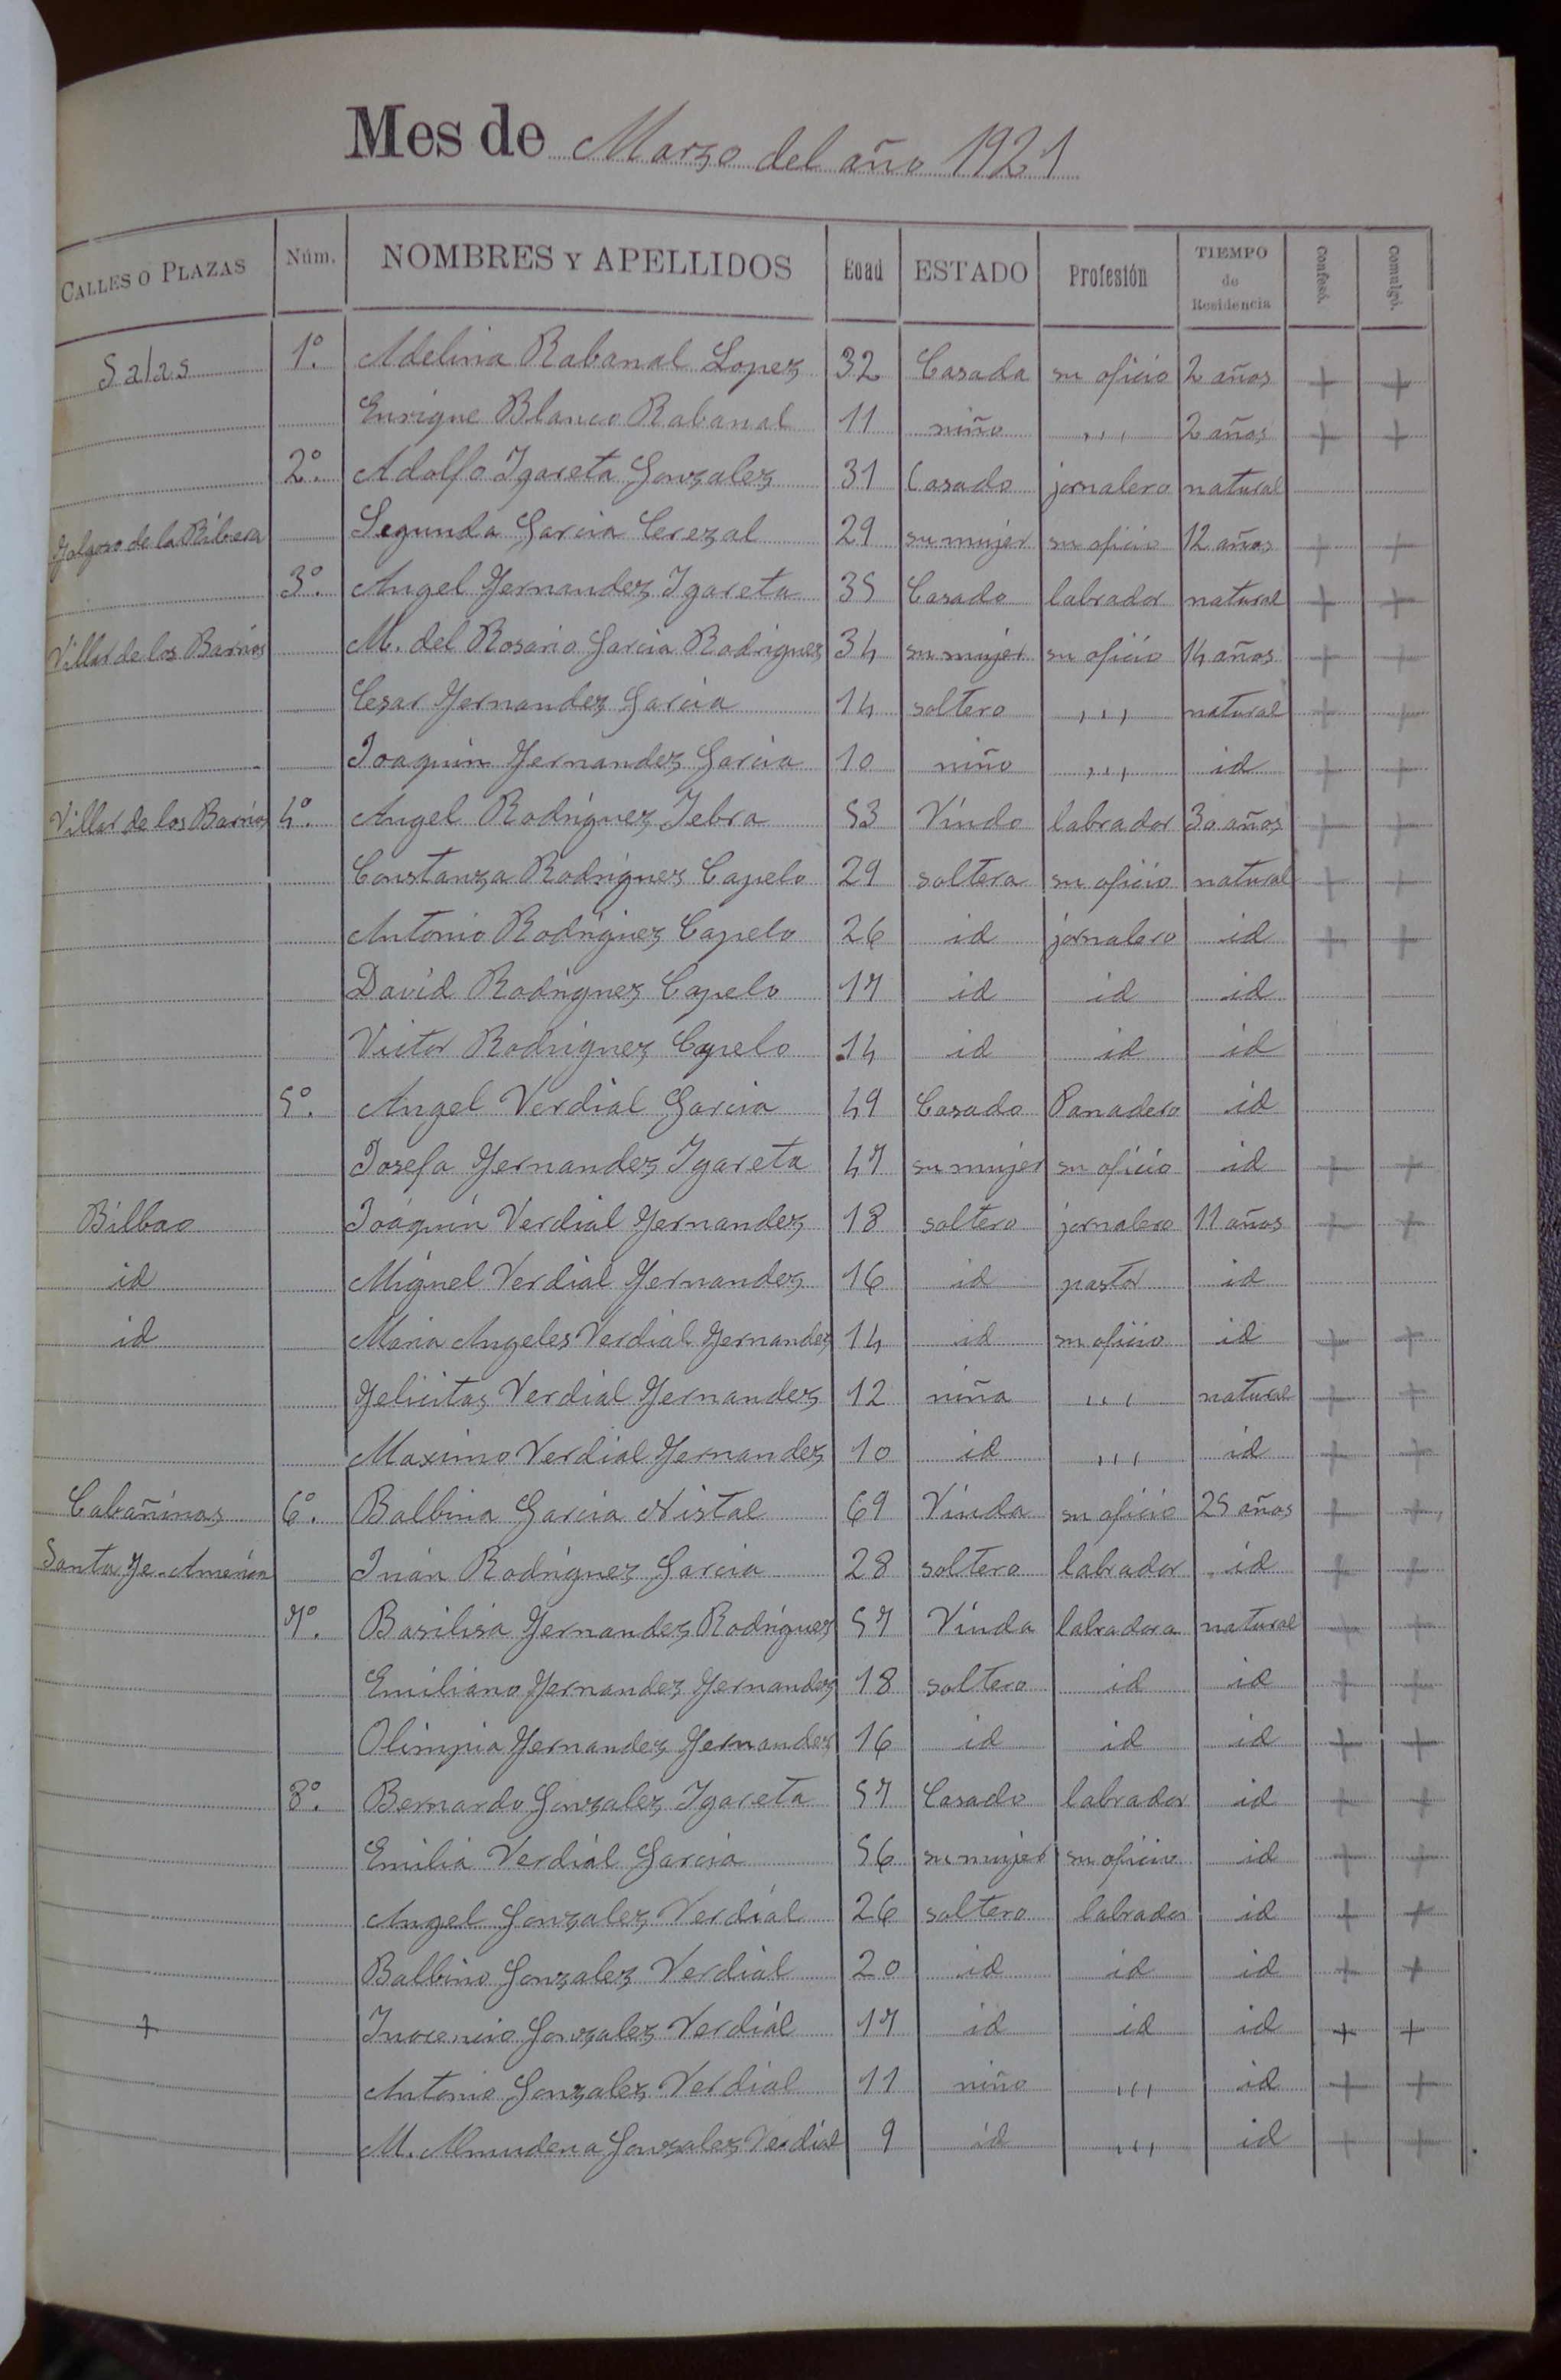 Mes de Marzo del año 1921
CALLES O PLAZAS Núm. NOMBRES Y APELLIDOS Edad ESTADO Profesión TIEMPO de Residencia Confesó. Comulgó.
Salas 1º. Adelina Rabanal Lopez 32 Casada su oficio 2 años + +
Enrique Blanco Rabanal 11 niño ,,, 2 años + +
2º. Adolfo Igareta Gonzalez 31 Casado jornalero natural
Folgoso de la Ribera Segunda Garcia Cerezal 29 su mujer su oficio 12 años + +
3º. Angel Fernandez Igareta 35 Casado labrador natural + +
Villar de los Barrios M. del Rosario Garcia Rodriguez 34 su mujer su oficio 14 años + +
Cesar Fernandez Garcia 14 soltero ,,, natural + +
Joaquin Fernandez Garcia 10 niño ,,, id + +
Villar de los Barrios 4º. Angel Rodriguez Tebra 53 Viudo labrador 30 años + +
Constanza Rodriguez Capelo 29 soltera su oficio natural + +
Antonio Rodriguez Capelo 26 id jornalero id + +
David Rodriguez Capelo 17 id id id
Victor Rodriguez Capelo 14 id id id
5º. Angel Verdial Garcia 49 Casado Panadero id
Josefa Fernandez Igareta 47 su mujer su oficio id + +
Bilbao Joaquin Verdial Fernandez 18 soltero jornalero 11 años + +
id Miguel Verdial Fernandez 16 id pastor id
id Maria Angeles Verdial Fernandez 14 id su oficio id + +
Felicitas Verdial Fernandez 12 niña ,,, natural + +
Maximo Verdial Fernandez 10 id ,,, id + +
Cabañinas 6º. Balbina Garcia Nistal 69 Viuda su oficio 25 años + +
Santa Fe. America Juan Rodriguez Garcia 28 soltero labrador id + +
7º. Basilisa Fernandez Rodriguez 57 Viuda labradora natural + +
Emiliano Fernandez Fernandez 18 soltero id id + +
Olimpia Fernandez Fernandez 16 id id id + +
8º. Bernardo Gonzalez Igareta 57 Casado labrador id + +
Emilia Verdial Garcia 56 su mujer su oficio id + +
Angel Gonzalez Verdial 26 soltero labrador id + +
Balbino Gonzalez Verdial 20 id id id + +
+ Inocencio Gonzalez Verdial 17 id id id + +
Antonio Gonzalez Verdial 11 niño ,,, id + +
M. Almudena Gonzalez Verdial 9 id ,,, id + +